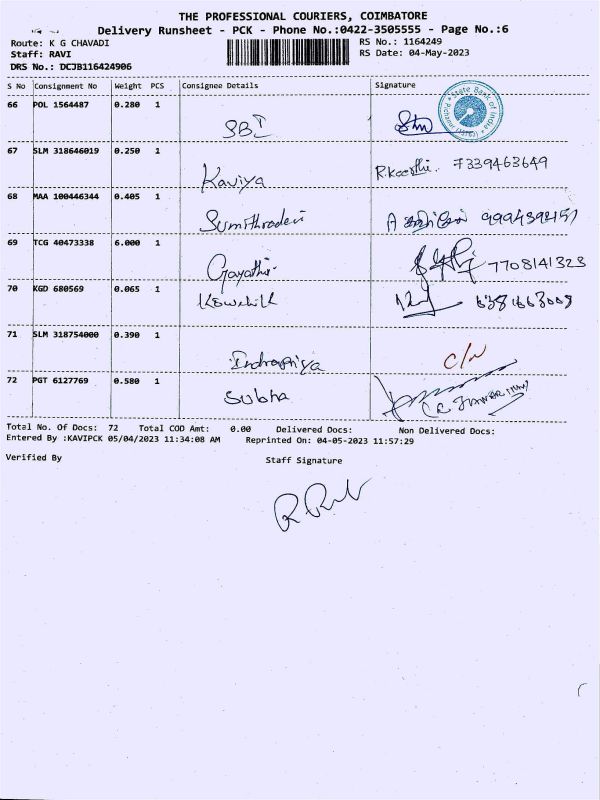 THE PROFESSIONAL COURIERS, COIMBATORE
Delivery Runsheet - PCK - Phone No.:0422-3505555 - Page No.:6
Route: K G CHAVADI RS No.: 1164249
Staff: RAVI RS Date: 04-May-2023
DRS No.: DCJB116424906
S No Consignment No Weight PCS Consignee Details Signature
66 POL 1564487 0.280 1 SBI State Bank of India
67 SLM 318646019 0.250 1 Kaviya R.Keerthi. 7339463649
68 MAA 100446344 0.405 1 Sumithradevi A
69 TCG 40473338 6.000 1 Gayathri 7708141323
70 KGD 680569 0.065 1 Kowshik
71 SLM 318754000 0.390 1 Indrapriya
72 PGT 6127769 0.580 1 Subha
Total No. Of Docs: 72 Total COD Amt: 0.00 Delivered Docs: Non Delivered Docs:
Entered By :KAVIPCK 05/04/2023 11:34:08 AM Reprinted On: 04-05-2023 11:57:29
Verified By Staff Signature